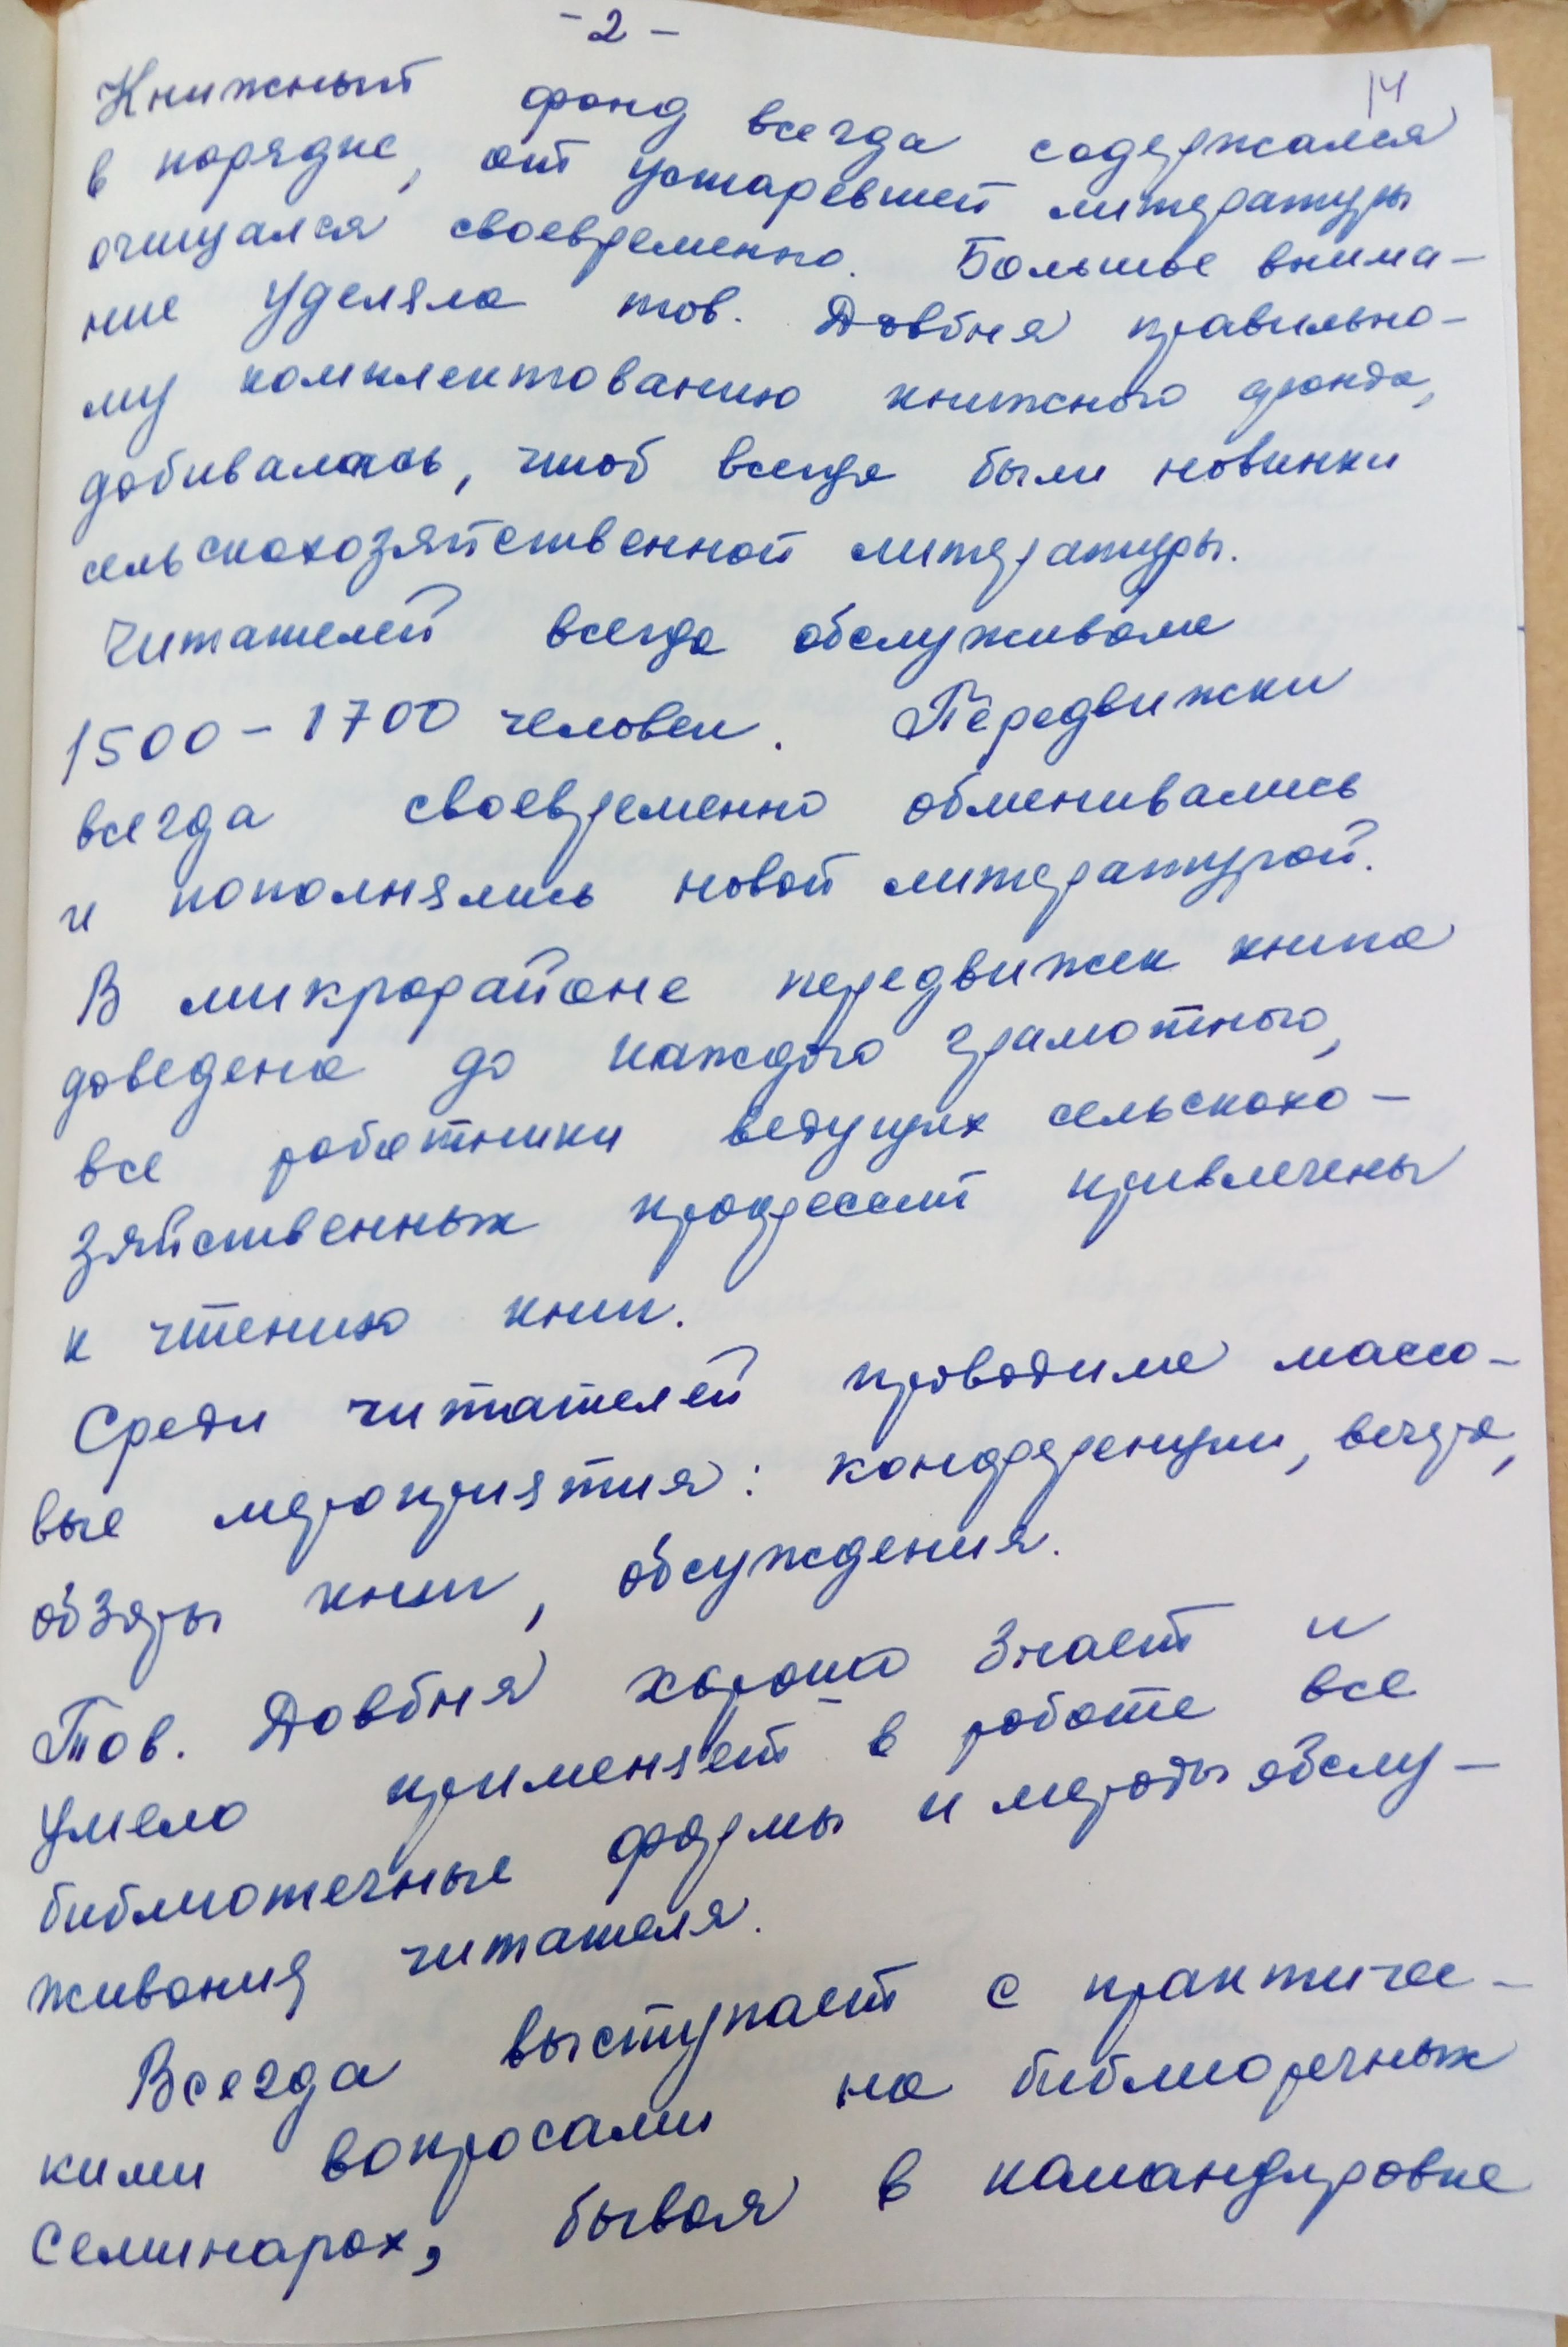 - 2 -
14
Книжный фонд всегда содержался
в порядке, от устаревшей литературы
очищался своевременно. Большое внима-
ние уделяла тов. Довбня правильно-
му комплектованию книжного фонда,
добивалась, чтоб всегда были новинки
сельскохозяйственной литературы.
Читателей всегда обслуживала
1500 - 1700 человек. Передвижки
всегда своевременно обменивались
и пополнялись новой литературой.
В микрорайоне передвижек книга
доведена до каждого грамотного,
все работники ведущих сельскохо-
зяйственных профессий привлечены
к чтению книг.
Среди читателей проводила массо-
вые мероприятия: конференции, вечера,
обзоры книг, обсуждения.
Тов. Довбня хорошо знает и
умело применяет в работе все
библиотечные формы и методы обслу-
живания читателя.
Всегда выступает с практичес-
кими вопросами на библиотечных
семинарах, бывая в командировке